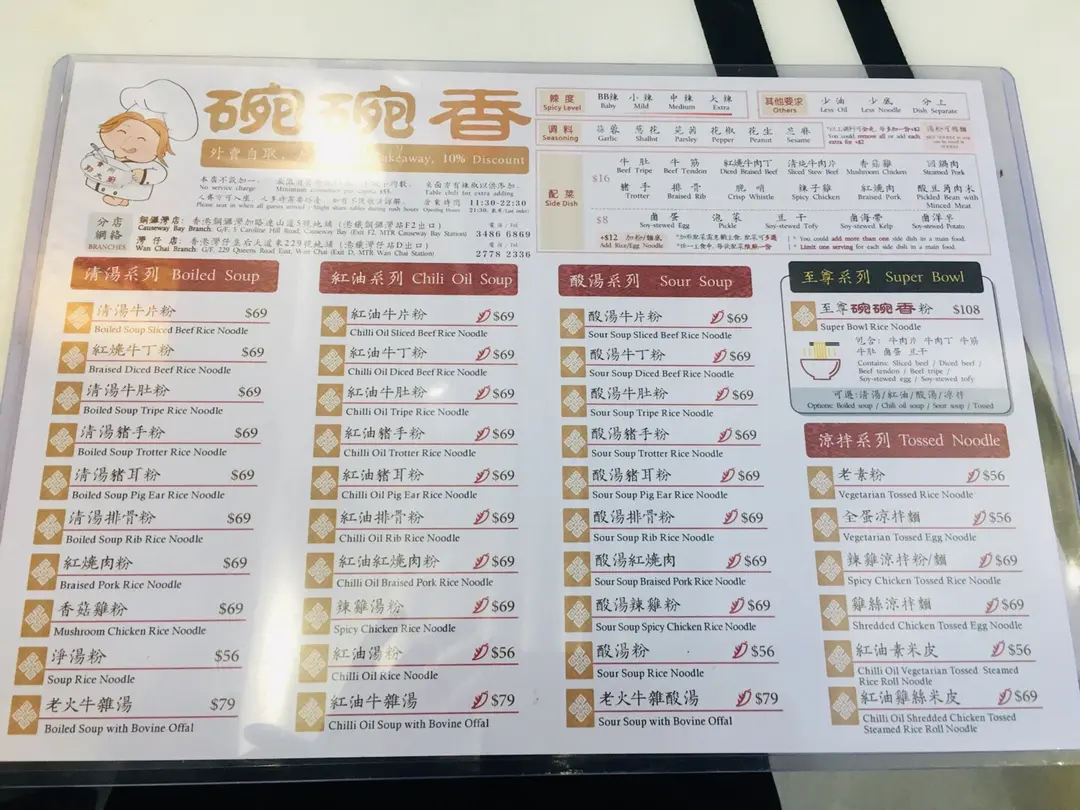 碗碗香
外賣自取
Takeaway, 10% Discount
本店不設加一
No service charge
11:30-22:30
分店網絡
BRANCHES
銅鑼灣店: 香港銅鑼灣加路連山道5號地鋪 (港鐵銅鑼灣站F2出口)
Causeway Bay Branch: G/F, 5 Caroline Hill Road, Causeway Bay (Exit F2, MTR Causeway Bay Station)
3486 6869
灣仔店: 香港灣仔皇后大道東229號地鋪 (港鐵灣仔站D出口)
Wan Chai Branch: G/F, 229 Queens Road East, Wan Chai (Exit D, MTR Wan Chai Station)
2778 2336
辣度
Spicy Level
BB辣 小辣 中辣 大辣
Baby Mild Medium Extra
其他要求
Others
少油 少底 分上
Less Oil Less Noodle Dish Separate
調料
Seasoning
蒜蓉 葱花 芫茜 花椒 花生 芝麻
Garlic Shallot Parsley Pepper Peanut Sesame
You could remove all or add each extra for +$2
配菜
Side Dish
$16
牛肚 牛筋 紅燒牛肉丁 清燉牛肉片 香菇雞 回鍋肉
Beef Tripe Beef Tendon Diced Braised Beef Sliced Stew Beef Mushroom Chicken Steamed Pork
豬手 排骨 脆哨 辣子雞 紅燒肉 酸豆角肉末
Trotter Braised Rib Crisp Whistle Spicy Chicken Braised Pork Pickled Bean with Minced Meat
$8
鹵蛋 泡菜 豆干 鹵海帶 鹵洋芋
Soy-stewed Egg Pickle Soy-stewed Tofy Soy-stewed Kelp Soy-stewed Potato
+$12 加粉/麵底
Add Rice/Egg Noodle
* You could add more than one side dish in a main food.
* Limit one serving for each side dish in a main food.
清湯系列 Boiled Soup
清湯牛片粉 $69
Boiled Soup Sliced Beef Rice Noodle
紅燒牛丁粉 $69
Braised Diced Beef Rice Noodle
清湯牛肚粉 $69
Boiled Soup Tripe Rice Noodle
清湯豬手粉 $69
Boiled Soup Trotter Rice Noodle
清湯豬耳粉 $69
Boiled Soup Pig Ear Rice Noodle
清湯排骨粉 $69
Boiled Soup Rib Rice Noodle
紅燒肉粉 $69
Braised Pork Rice Noodle
香菇雞粉 $69
Mushroom Chicken Rice Noodle
淨湯粉 $56
Soup Rice Noodle
老火牛雜湯 $79
Boiled Soup with Bovine Offal
紅油系列 Chili Oil Soup
紅油牛片粉 $69
Chilli Oil Sliced Beef Rice Noodle
紅油牛丁粉 $69
Chilli Oil Diced Beef Rice Noodle
紅油牛肚粉 $69
Chilli Oil Tripe Rice Noodle
紅油豬手粉 $69
Chilli Oil Trotter Rice Noodle
紅油豬耳粉 $69
Chilli Oil Pig Ear Rice Noodle
紅油排骨粉 $69
Chilli Oil Rib Rice Noodle
紅油紅燒肉粉 $69
Chilli Oil Braised Pork Rice Noodle
辣雞湯粉 $69
Spicy Chicken Rice Noodle
紅油湯粉 $56
Chilli Oil Rice Noodle
紅油牛雜湯 $79
Chilli Oil Soup with Bovine Offal
酸湯系列 Sour Soup
酸湯牛片粉 $69
Sour Soup Sliced Beef Rice Noodle
酸湯牛丁粉 $69
Sour Soup Diced Beef Rice Noodle
酸湯牛肚粉 $69
Sour Soup Tripe Rice Noodle
酸湯豬手粉 $69
Sour Soup Trotter Rice Noodle
酸湯豬耳粉 $69
Sour Soup Pig Ear Rice Noodle
酸湯排骨粉 $69
Sour Soup Rib Rice Noodle
酸湯紅燒肉 $69
Sour Soup Braised Pork Rice Noodle
酸湯辣雞粉 $69
Sour Soup Spicy Chicken Rice Noodle
酸湯粉 $56
Sour Soup Rice Noodle
老火牛雜酸湯 $79
Sour Soup with Bovine Offal
至尊系列 Super Bowl
至尊碗碗香粉 $108
Super Bowl Rice Noodle
包含: 牛肉片 牛肉丁 牛筋
牛肚 鹵蛋 豆干
Contains: Sliced beef / Diced beef /
Beef tendon / Beef tripe /
Soy-stewed egg / Soy-stewed tofy
可選:清湯/紅油/酸湯/涼拌
Options: Boiled soup / Chili oil soup / Sour soup / Tossed
涼拌系列 Tossed Noodle
老素粉 $56
Vegetarian Tossed Rice Noodle
全蛋凉拌麵 $56
Vegetarian Tossed Egg Noodle
辣雞涼拌粉/麵 $69
Spicy Chicken Tossed Rice Noodle
雞絲涼拌麵 $69
Shredded Chicken Tossed Egg Noodle
紅油素米皮 $56
Chilli Oil Vegetarian Tossed Steamed
Rice Roll Noodle
紅油雞絲米皮 $69
Chilli Oil Shredded Chicken Tossed
Steamed Rice Roll Noodle